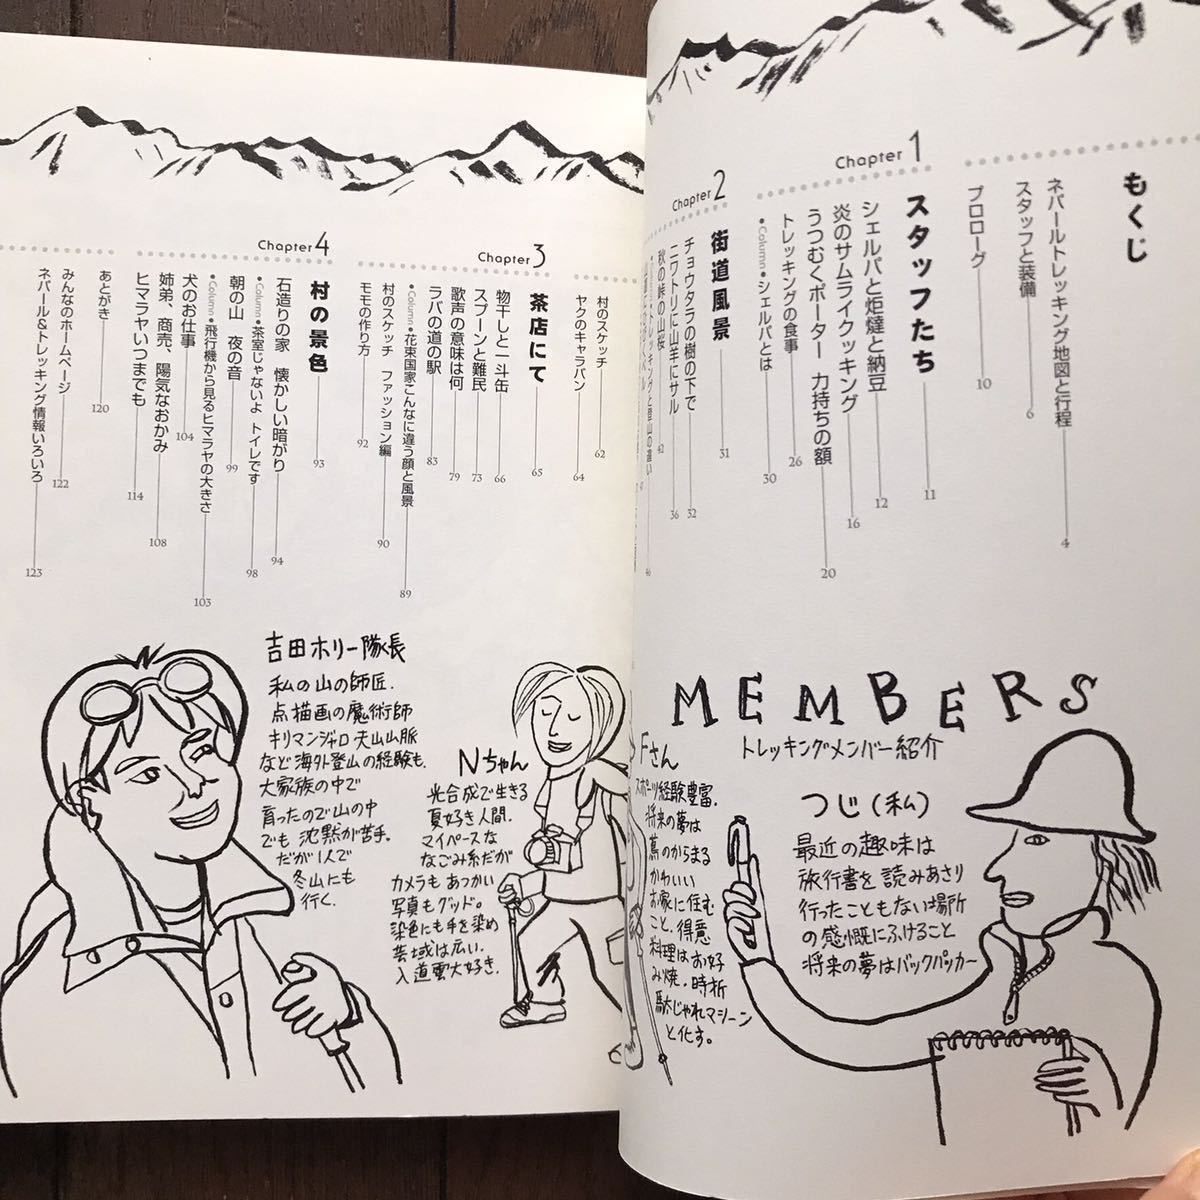 もくじ
ネパールトレッキング地図と行程 4
スタッフと装備 6
プロローグ 10
Chapter 1
スタッフたち 11
シェルパと炬燵と納豆 12
炎のサムライクッキング 16
うつむくポーター 力持ちの額 20
トレッキングの食事 26
•Column•シェルパとは 30
Chapter 2
街道風景 31
チョウタラの樹の下で 32
ニワトリに山羊にサル 36
秋の峠の山桜 42
トレッキングと登山の違い 46
村のスケッチ
ヤクのキャラバン 62
64
Chapter 3
茶店にて 65
物干しと一斗缶 66
スプーンと難民 73
歌声の意味は何 79
ラバの道の駅 83
•Column•花束国家こんなに違う顔と風景 89
村のスケッチ ファッション編 90
モモの作り方 92
Chapter 4
村の景色 93
石造りの家 懐かしい暗がり 94
•Column•茶室じゃないよ トイレです 98
朝の山 夜の音 99
•Column•飛行機から見るヒマラヤの大きさ 103
犬のお仕事 104
姉弟、商売、陽気なおかみ 108
ヒマラヤいつまでも 114
あとがき 120
みんなのホームページ 122
ネパール&トレッキング情報いろいろ 123
MEMBERS
トレッキングメンバー紹介
つじ(私)
最近の趣味は
旅行書を読みあさり
行ったこともない場所
の感慨にふけること
将来の夢はバックパッカー
Fさん
スポーツ経験豊富.
将来の夢は
蔦のからまる
かわいい
お家に住む
こと. 得意
料理はお好
み焼. 時折
駄じゃれマシーン
と化す。
Nちゃん
光合成で生きる
夏好き人間.
マイペースな
なごみ系だが
カメラもあつかい
写真もグッド。
染色にも手を染め
芸域は広い.
入道雲大好き.
吉田ホリー隊長
私の山の師匠.
点描画の魔術師
キリマンジャロ 天山山脈
など海外登山の経験も.
大家族の中で
育ったので山の中
でも 沈黙が苦手.
だが1人で
冬山にも
行く.